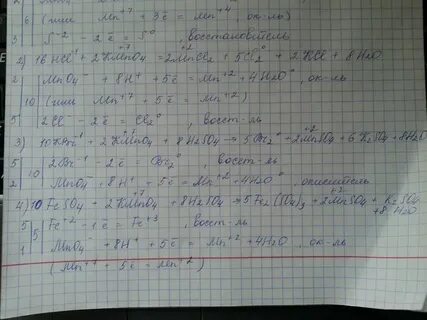 6 (или Mn⁺⁷ + 3ē = Mn⁺⁴ ок-ль)
3 S⁻² - 2ē = S⁰, восстановитель
2) 16 HCl⁻¹ + 2KMn⁺⁷O₄ = 2Mn⁺²Cl₂ + 5Cl₂⁰ + 2KCl + 8H₂O
2 MnO₄⁻ + 8H⁺ + 5ē = Mn⁺² + 4H₂O⁰, ок-ль
10 (или Mn⁺⁷ + 5ē = Mn⁺²)
5 2Cl⁻ - 2ē = Cl₂⁰, восст-ль
3) 10KBr⁻¹ + 2KMnO₄ + 8H₂SO₄ → 5Br₂⁰ + 2Mn⁺²SO₄ + 6K₂SO₄ + 8H₂O
5 2Br⁻¹ - 2ē = Br₂⁰, восст-ль
10
2 MnO₄⁻ + 8H⁺ + 5ē = Mn⁺² + 4H₂O⁰, окислитель
4) 10 FeSO₄ + 2KMn⁺⁷O₄ + 8H₂SO₄ → 5Fe₂(SO₄)₃ + 2MnSO₄ + K₂SO₄
+ 8H₂O
5 Fe⁺² - 1ē = Fe⁺³, восст-ль
5
1 MnO₄⁻ + 8H⁺ + 5ē = Mn⁺² + 4H₂O, ок-ль
(Mn⁺⁷ + 5ē = Mn⁺²)